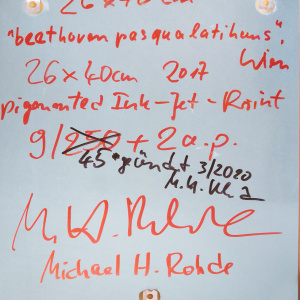 26 x 40 cm
"beethoven pasqualatihaus",
Wien
26 x 40 cm 2017
pigmented Ink-Jet-Print
9/250 + 2 a.p.
45 * 3/2020
Michael H. Rohde